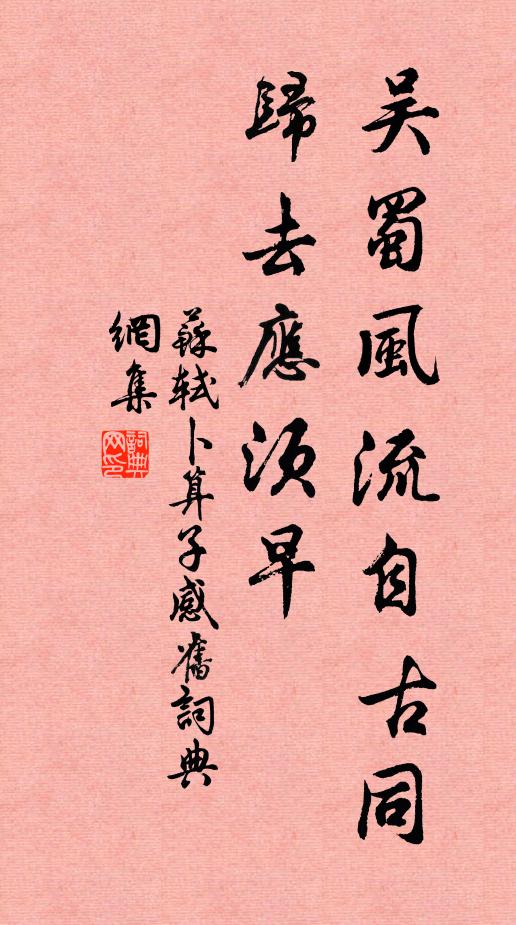 吴蜀風流自古同
歸去應須早
蘇軾卜算子感舊詞典
網集
詞典網印